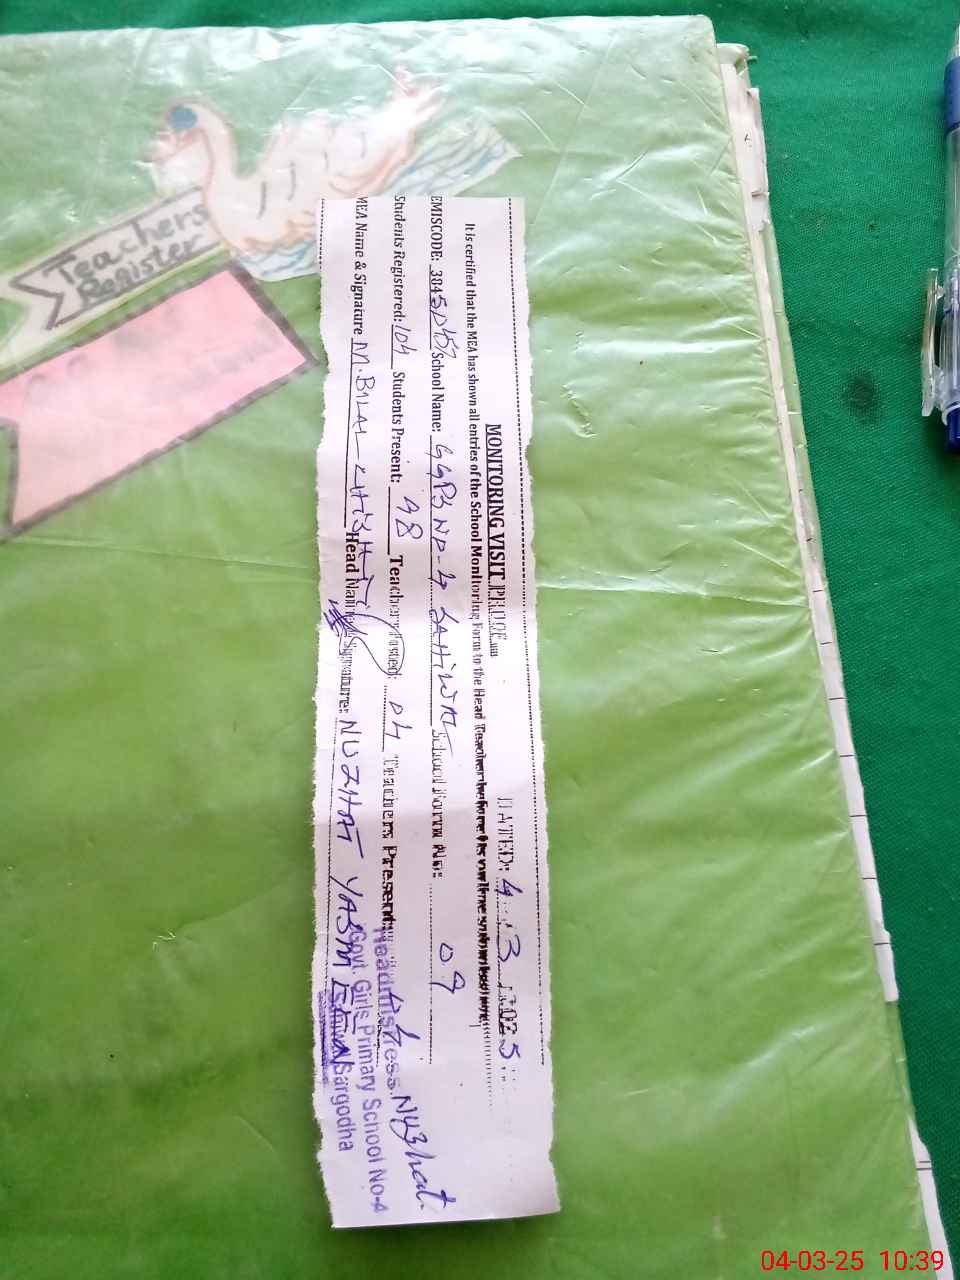 Teachers
Register
MONITORING VISIT PROOF DATED: 4 . 3 . 2025
It is certified that the MEA has shown all entries of the School Monitoring Form to the Head Teacher before its online submission.
EMISCODE: 3845 School Name: SAHIWAL School Form No: 09
Students Registered: 104 Students Present: 98 Teachers Posted: 04 Teachers Present:
MEA Name & Signature M. BILAL Head Name/Signature: NUZHAT YASMEEN
Nuzhat
Headmistress
Govt. Girls Primary School No-4
Sahiwal Sargodha
04-03-25 10:39